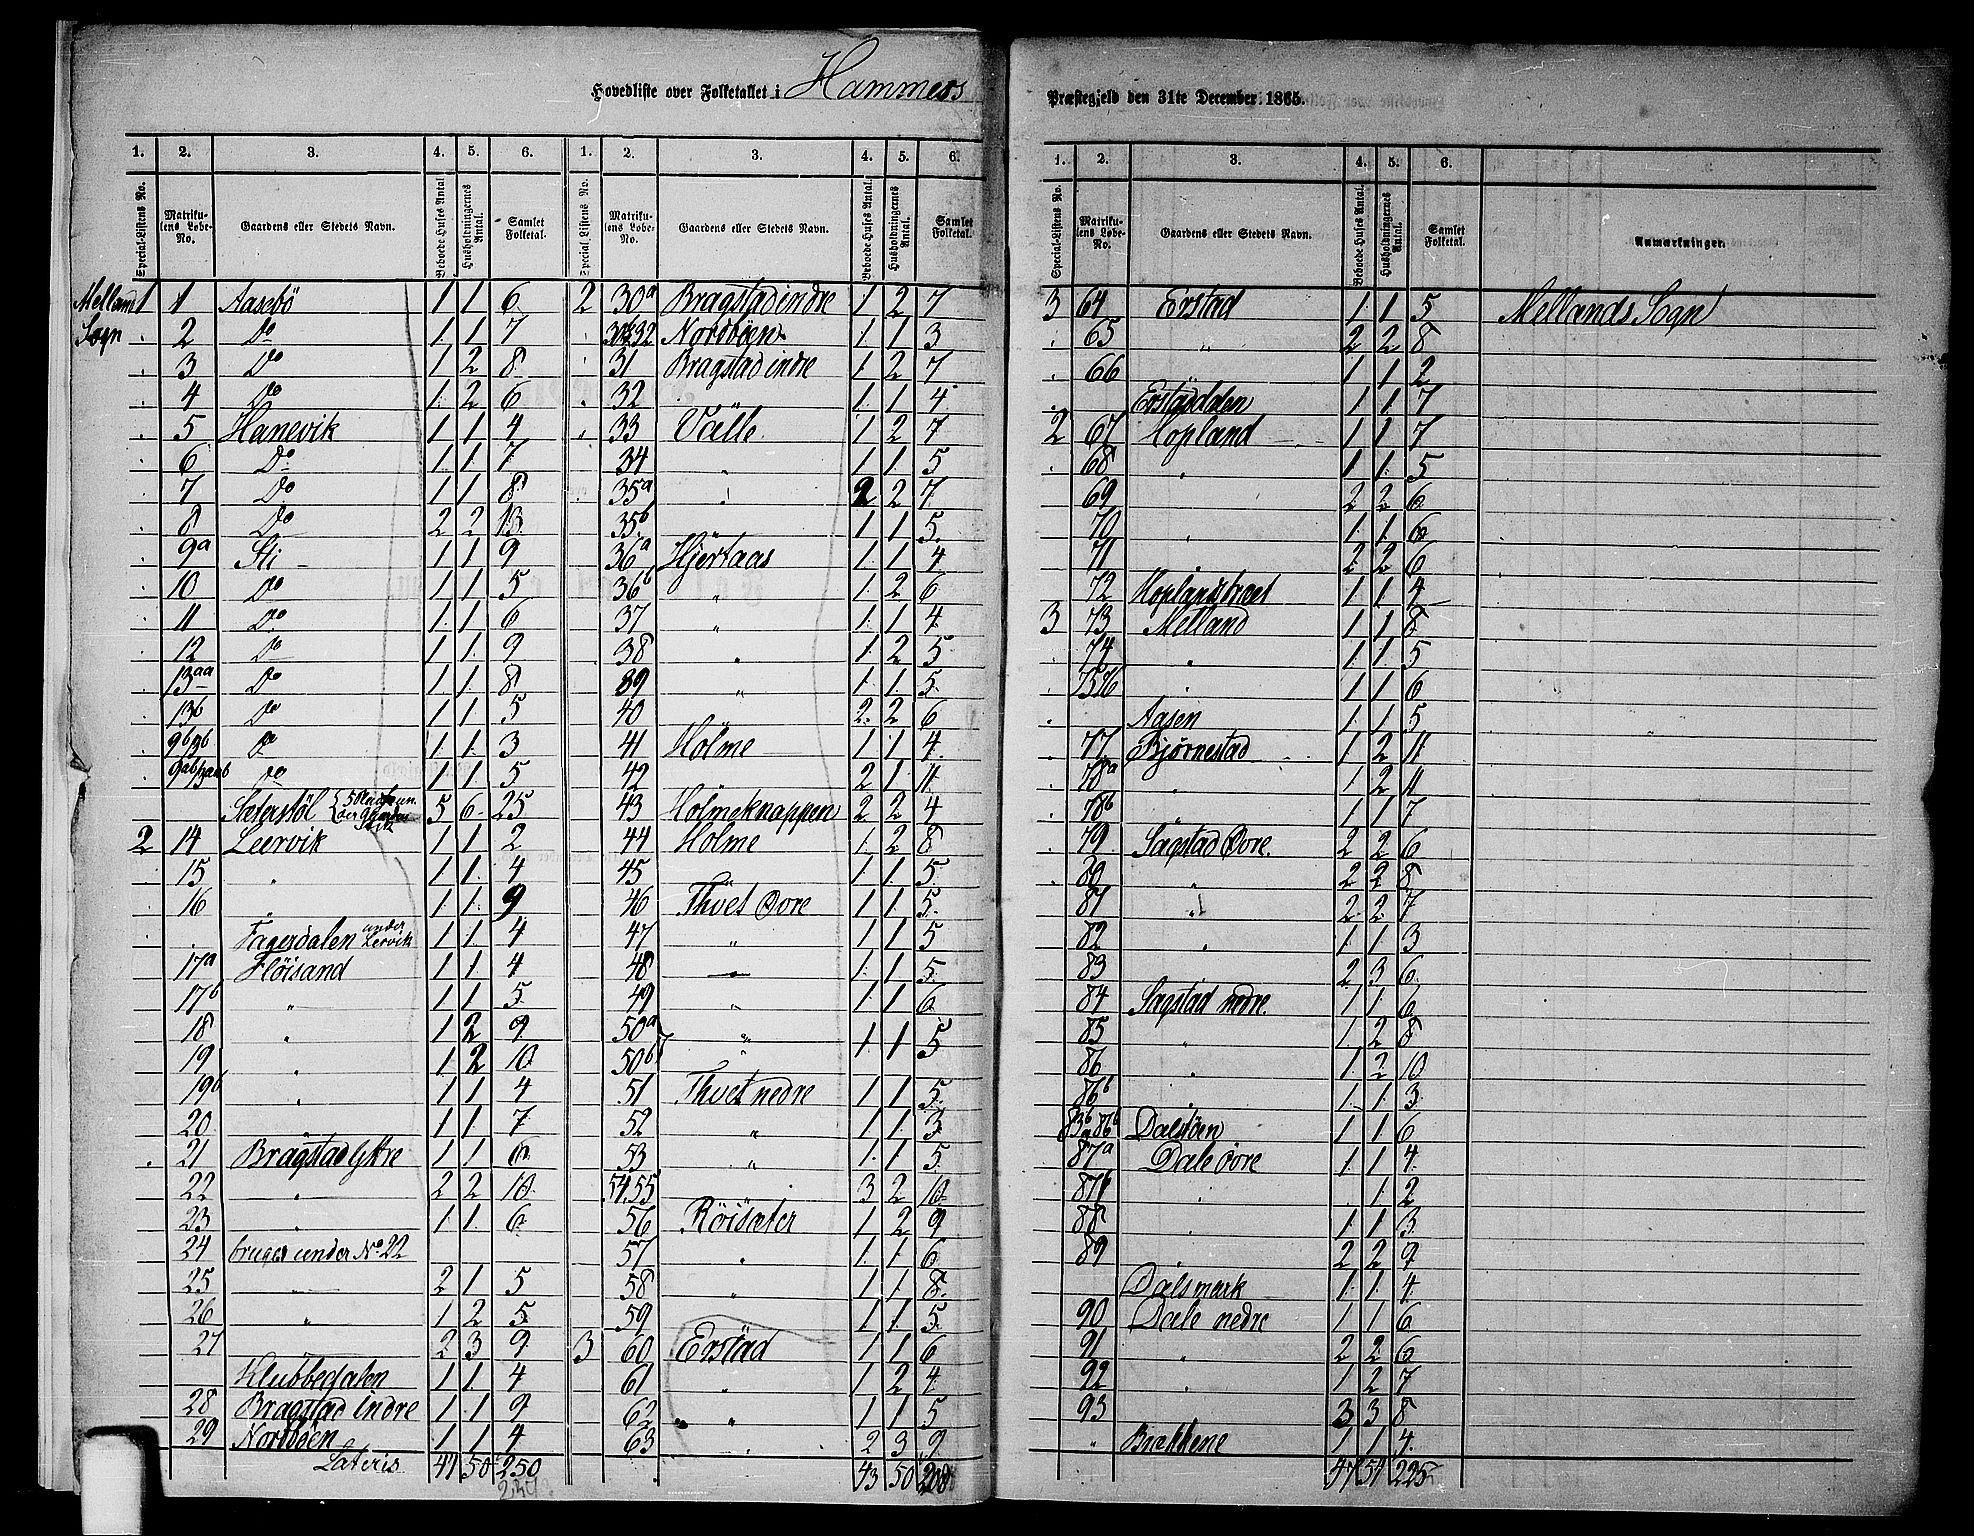 Hovedliste over Folketallet i Hammers Præstegjeld den 31te December 1865.
1. 2. 3. 4. 5. 6. 1. 2. 3. 4. 5. 6.
Special-Listens No. Matrikulens Løbe-No. Gaardens eller Stedets Navn. Beboede Huses Antal Husholdningernes Antal. Samlet Folketal. Special-Listens No. Matrikulens Løbe-No. Gaardens eller Stedets Navn. Beboede Huses Antal. Husholdningernes Antal. Samlet Folketal.
Melland 1 1 Aasebö 1 1 6 2 30a Bragstad indre 1 2 7
Sogn 2 Do 1 1 7 Nordböen 1 1 3
3 Do 1 2 8 31 Bragstad indre 1 2 7
4 Do 1 2 6 32 1 1 4
5 Hanevik 1 1 4 33 Valle 1 2 7
6 Do 1 1 7 34 " 1 1 5
7 Do 1 1 8 35a " 2 2 7
8 Do 2 2 13 35b 1 1 5
9a Sti 1 1 9 36a Hjertaas 1 1 4
10 Do 1 1 5 36b " 1 2 6
11 Do 1 1 6 37 " 1 1 4
12 Do 1 1 9 38 " 1 2 5
13aa Do 1 1 8 39 " 1 1 5
13b Do 1 1 5 40 2 2 6
Do 1 1 3 41 Holme 1 1 4
Do 1 1 5 42 2 1 11
Sæterstöl 5 6 25 43 Holmeknappen 2 2 4
2 14 Leervik 1 1 2 44 Holme 1 2 8
15 " 1 1 4 45 1 1 5
16 " 1 1 9 46 Thvet Övre 1 1 5
Fagerdalen under Lervik 1 1 4 47 " 1 1 5
17a Flöisand 1 1 4 48 " 1 1 5
17b " 1 1 5 49 " 1 1 6
18 " 1 2 9 50a " 1 1 5
19 " 1 2 10 50b "
19b " 1 1 4 51 Thvet nedre 1 1 5
20 " 1 1 7 52 " 1 1 3
21 Bragstad Yttre 1 1 6 53 " 1 1 5
22 " 2 2 10 54.55 3 2 10
23 " 1 1 6 56 Röisæter 1 2 9
24 bruges under No 22 57 " 1 1 6
25 " 2 1 5 58 " 1 1 8
26 " 1 2 5 59 1 1 5
27 2 3 9 3 60 Erstad 1 1 6
Klubbedalen 1 1 4 61 " 1 2 4
28 Bragstad Indre 1 1 9 62 " " 1 1 5
29 Nordböen 1 1 4 63 " 2 3 9
Lateris 41 50 250 43 50 208
1. 2. 3. 4. 5. 6.
Special-Listens No. Matrikulens Løbe-No. Gaardens eller Stedets Navn. Beboede Huses Antal. Husholdningernes Antal. Samlet Folketal. Anmærkninger.
3 64 Erstad 1 1 5 Mellands Sogn
65 " 2 2 8
66 1 1 2
Erstaddalen 1 1 7
2 67 Hopland 1 1 7
68 " 1 1 5
69 2 2 6
70 " 1 1 6
71 2 2 6
72 Hoplandstræet 1 1 4
3 73 Melland 1 1 8
74 " 1 1 5
75.76 " 1 1 6
Aasen 1 1 5
77 Bjørnestad 1 2 11
78a " 1 2 11
78b 1 1 7
79 Sagstad Övre 2 2 6
80 " 2 2 8
81 " 2 2 7
82 " 1 1 3
83 2 3 6
84 Sagstad nedre 1 1 6
85 " 1 2 8
86 1 2 10
86b " 1 1 3
Dalstöen 1 1 6
87a Dale övre 1 1 4
87b " 1 2
88 " 1 1 3
89 2 2 9
Dalsmark 1 1 4
90 Dale nedre 1 1 6
91 " 2 2 6
92 " 1 2 7
93 3 3 8
" Brækkene 1 1 4
47 54 225